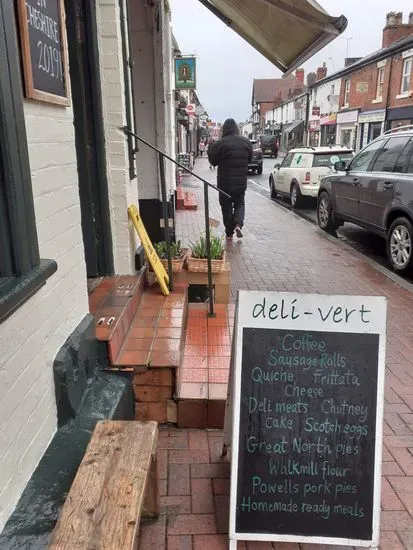 IN
CHESHIRE
2019
deli-vert
Coffee
Sausage Rolls
Quiche Frittata
Cheese
Deli meats Chutney
Cake Scotch eggs
Great North pies
Walkmill flour
Powells pork pies
Homemade ready meals